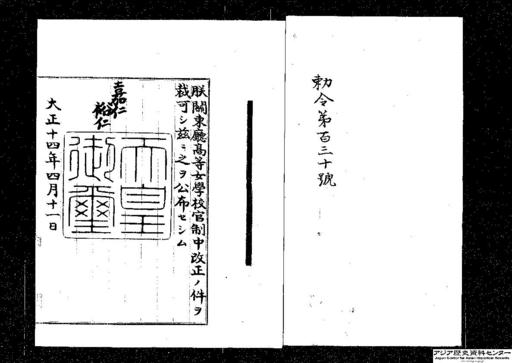 勅令第百三十號
朕關東廳高等女學校官制中改正ノ件ヲ
裁可シ茲ニ之ヲ公布セシム
嘉仁
裕仁
天皇
御璽
大正十四年四月十一日
アジア歴史資料センター
Japan Center for Asian Historical Records